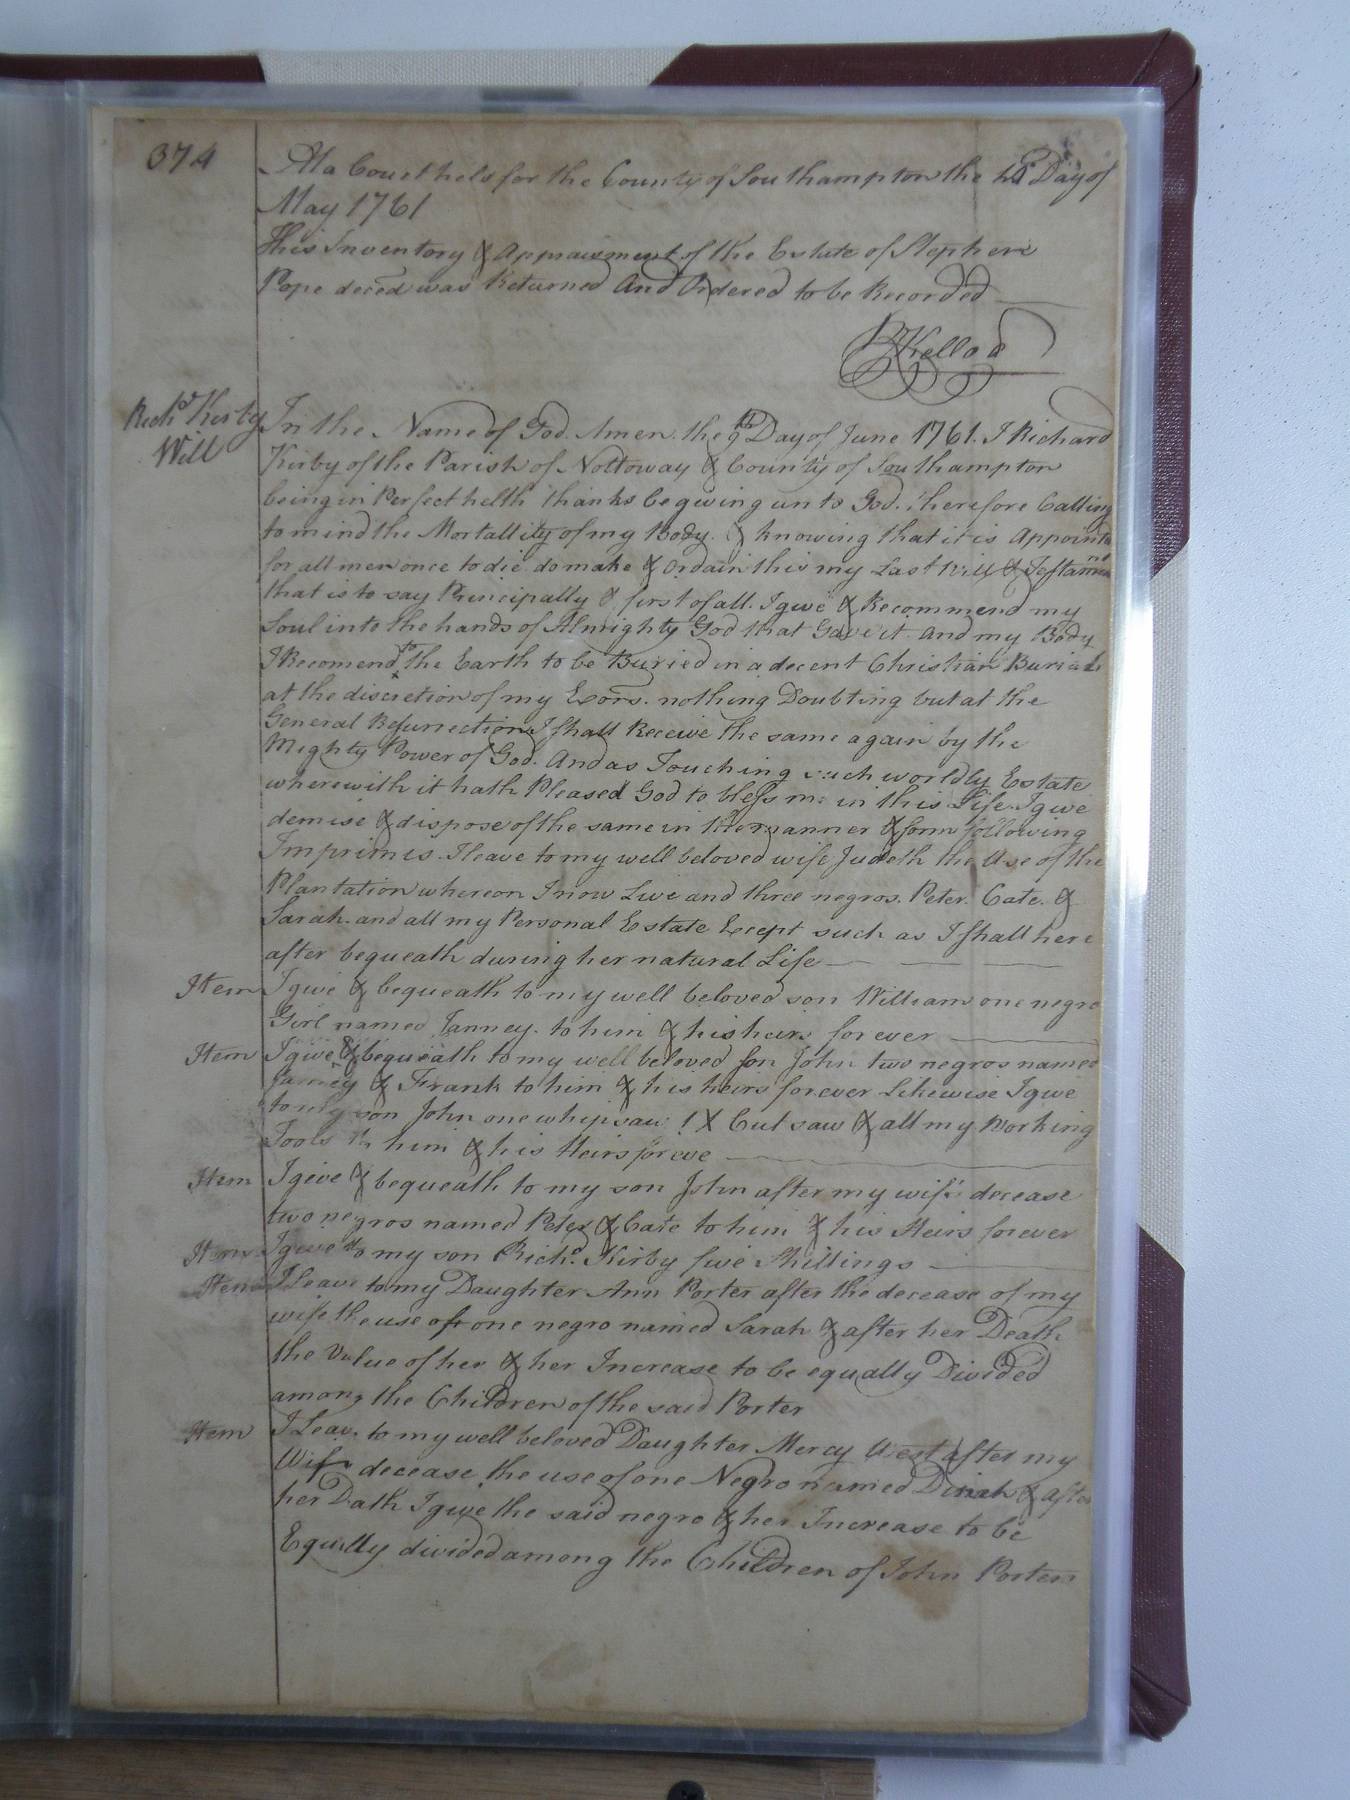 374
At a Court held for the County of Southampton the Day of
May 1761
This Inventory & Appraisment of the Estate of Stephen
Pope deced was Returned And Ordered to be Recorded
Richd Kirby
Will
In the Name of God Amen the 9th Day of June 1761. I Richard
Kirby of the Parish of Nottoway & County of Southampton
being in Perfect helth thanks be giving unto God. Therefore Calling
to mind the Mortallity of my Body. & knowing that it is Appointed
for all men once to die do make & ordain this my Last Will & Testament
that is to say Principally & first of all. I give & Recommend my
Soul into the hands of Almighty God that Gave it and my Body
I Recomend to the Earth to be Buried in a decent Christian Burial
at the discretion of my Exors. nothing Doubting but at the
General Resurrection I shall Receive the same again by the
Mighty Power of God. And as Touching such worldly Estate
wherewith it hath Pleased God to bless me in this Life. I give
demise & dispose of the same in the manner & form following
Imprimis. I leave to my well beloved wife Judeth the Use of the
Plantation whereon I now Live and three negros. Peter. Cate. &
Sarah. and all my Personal Estate Except such as I shall here
after bequeath during her natural Life
Item I give & bequeath to my well beloved son William one negro
Girl named Janney. to him & his heirs forever
Item I give & bequeath to my well beloved son John two negros named
& Frank to him & his heirs forever Likewise I give
to my son John one whipsaw 1 X Cut saw & all my Working
Tools to him & his Heirs foreve
Item I give & bequeath to my son John after my wifes decease
two negros named Peter & Cate to him & his Heirs forever
Item I give to my son Richd. Kirby five Shillings
Item I Leave to my Daughter Ann Porter after the decease of my
wife the use of one negro named Sarah & after her Death
the Value of her & her Increase to be equally Divided
among the Children of the said Porter
Item I Leave to my well beloved Daughter Mercy West after my
Wifes decease the use of one Negro named Dinah & after
her Dath I give the said negro & her Increase to be
Equally divided among the Children of John Porter